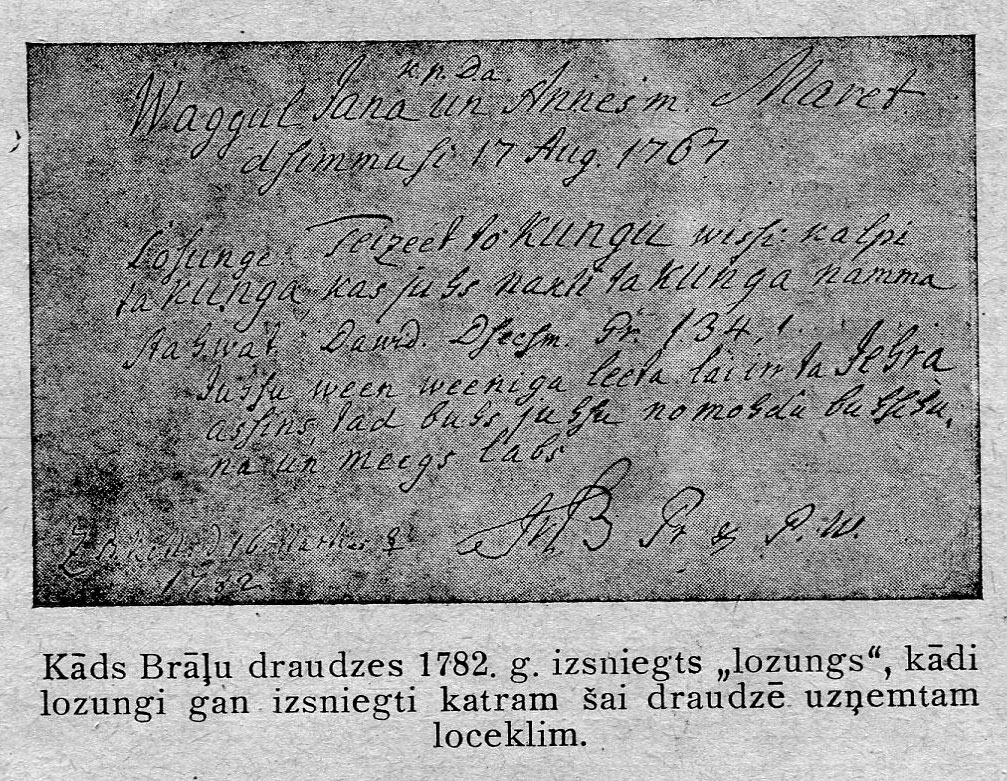 k.p. Da.
Waggul Jana un Annes m. Maret
dsimmusi 17 Aug. 1767
Losunge: Teizeet to KUNGU wissi kalpi
ta KUNGA, kas juhs naktî ta KUNGA namma
stahwat. Dawid. Dseesm. Gr. 134,1.
Juhsu ween weeniga leeta lai irr ta Jehra
assins, tad buhs juhsu nomohdâ buhschanu,
na un meegs labs
16 Martius ♀
1782
Pr & P.W.
Kāds Brāļu draudzes 1782. g. izsniegts „lozungs“, kādi
lozungi gan izsniegti katram šai draudzē uzņemtam
loceklim.